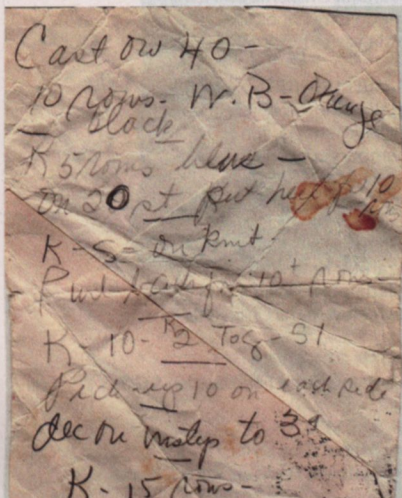 Cast on 40 -
10 rows - W. B - Orange
Black
K 5 rows blue -
on 20 st put half 10
K - S - on knit
Purl back for 10 row
K - 10 - K2 Tog - S1
Pick - up 10 on each side
dec on instep to
K - 15 rows -